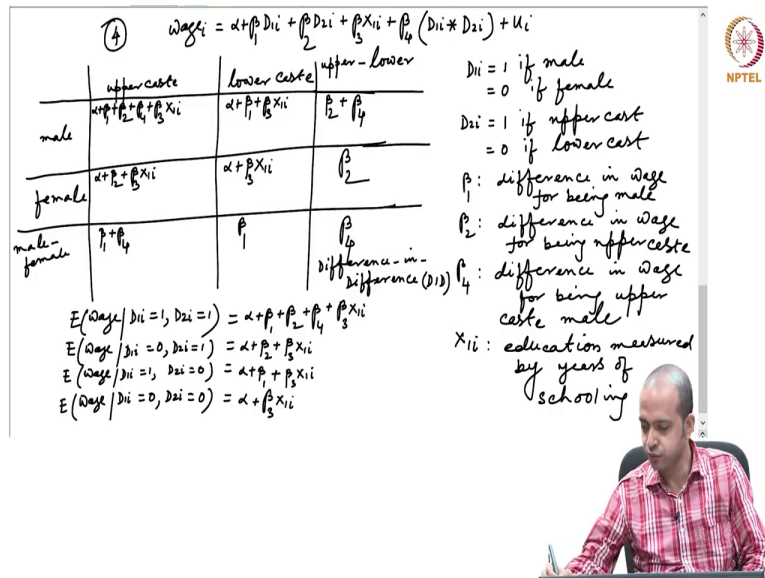 ④ wageᵢ = α+β₁D₁ᵢ + β₂D₂ᵢ + β₃X₁ᵢ + β₄(D₁ᵢ * D₂ᵢ) + Uᵢ
NPTEL
upper caste lower caste upper-lower
male α+β₁+β₂+β₄+β₃X₁ᵢ α+β₁+β₃X₁ᵢ β₂+β₄
female α+β₂+β₃X₁ᵢ α+β₃X₁ᵢ β₂
male-female β₁+β₄ β₁ β₄
Difference-in-
Difference (DID)
E(wage/D₁ᵢ=1, D₂ᵢ=1) = α+β₁+β₂+β₄+β₃X₁ᵢ
E(wage/D₁ᵢ=0, D₂ᵢ=1) = α+β₂+β₃X₁ᵢ
E(wage/D₁ᵢ=1, D₂ᵢ=0) = α+β₁+β₃X₁ᵢ
E(wage/D₁ᵢ=0, D₂ᵢ=0) = α+β₃X₁ᵢ
D₁ᵢ = 1 if male
= 0 if female
D₂ᵢ = 1 if upper cast
= 0 if lower cast
β₁: difference in wage
for being male
β₂: difference in wage
for being upper caste
β₄: difference in wage
for being upper
caste male
X₁ᵢ: education measured
by years of
schooling